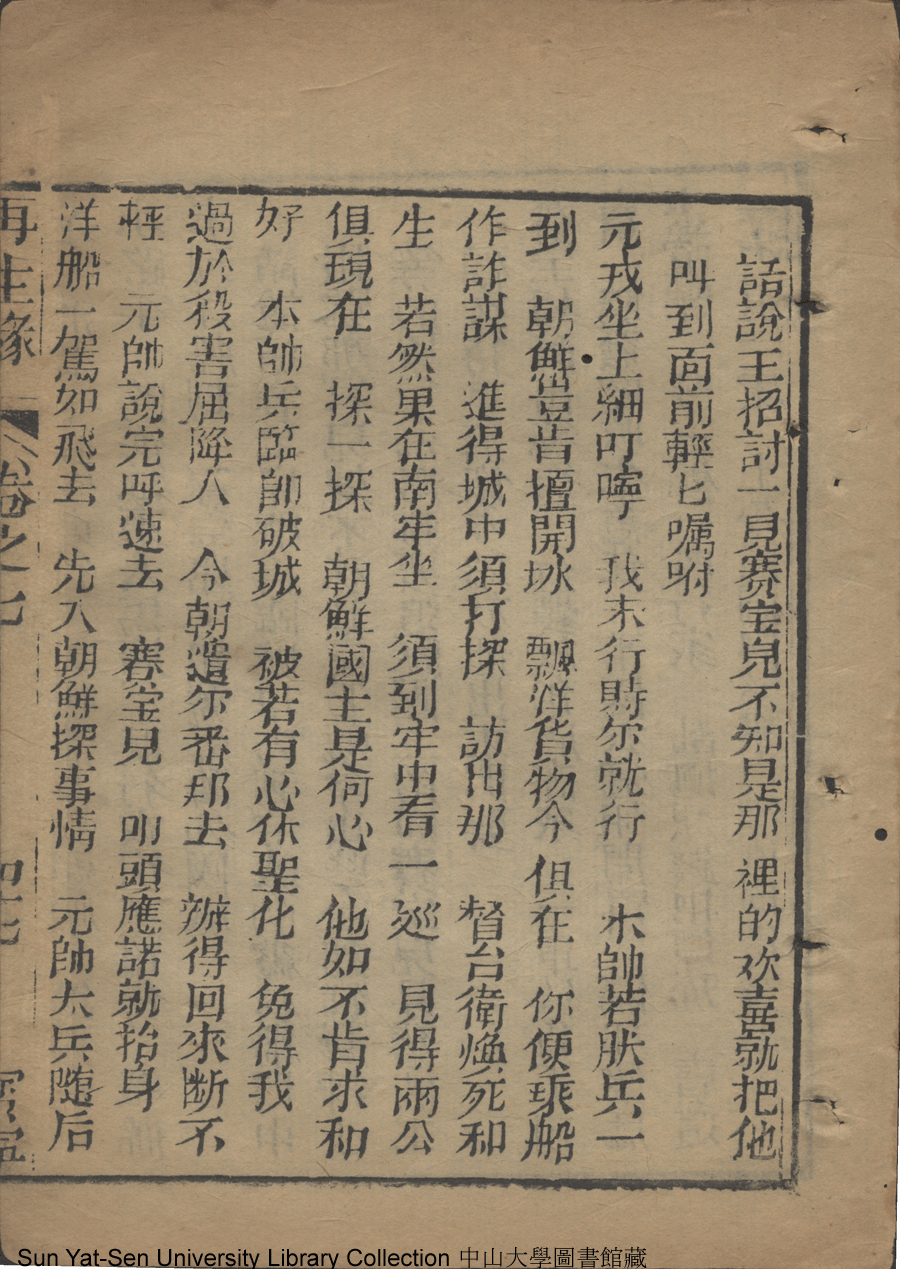 話說王招討一見賽宝兒不知是那裡的欢喜就把他
叫到面前輕匕嘱咐
元戎坐上細叮嚀　我末行時尔就行　本帥若朕兵一
到　朝鮮豈肯擅開城　飄洋貨物今俱在　你便乘船
作詐謀　進得城中須打探　訪出那　督台衛煥死和
生　若然果在南牢坐　須到牢中看一巡　見得兩公
俱現在　探一探　朝鮮國主是何心　他如不肯求和
好　本帥兵臨卽破城　被若有心休聖化　免得我
過於殺害屈降人　今朝遣尔番邦去　辦得回來断不
輕　元帥說完呼速去　賽宝兒　叩頭應諾就抬身
洋船一駕如飛去　先入朝鮮探事情　元帥大兵随后
再生緣　卷之七
Sun Yat-Sen University Library Collection 中山大學圖書館藏